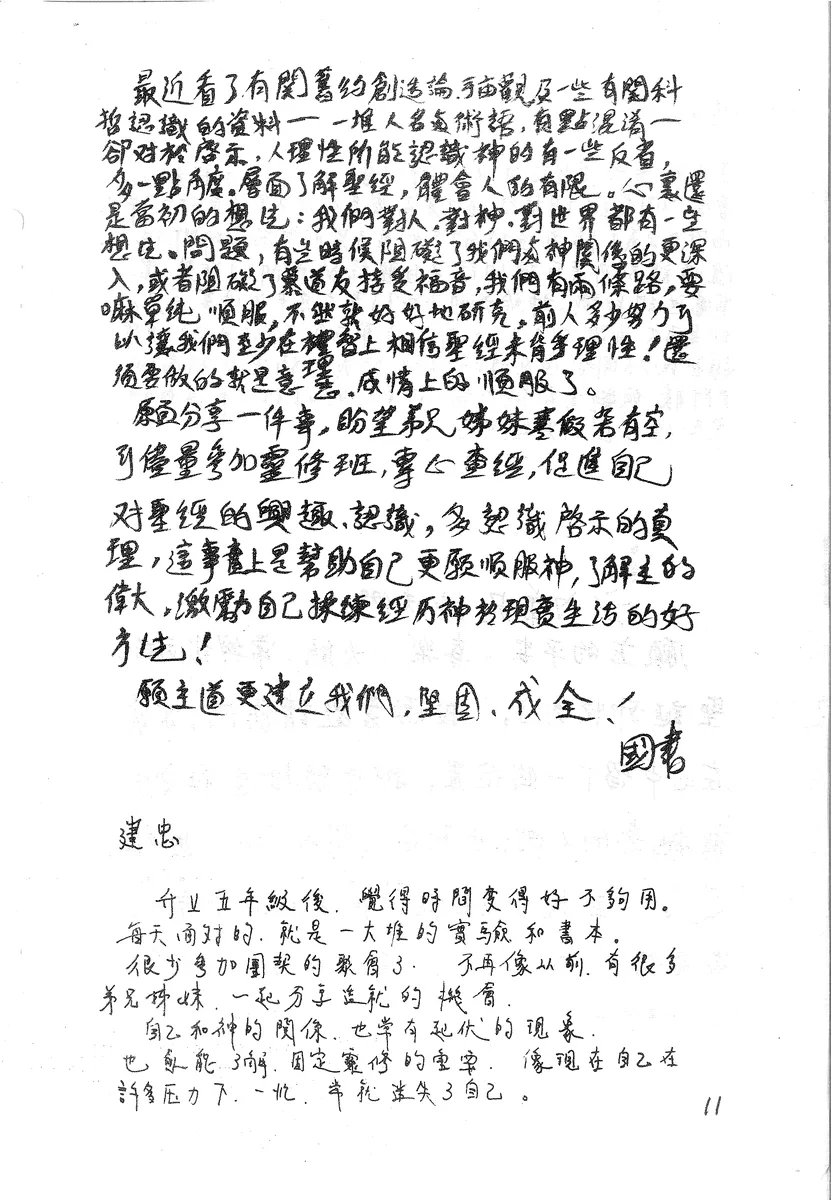 最近看了有関舊約創造論、宇宙觀及一些有関科
哲認識的資料——一堆人名与術語，有點混淆—
卻对於啓示，人理性所能認識神的有一些反省，
多一點角度。層面了解聖經，體會人的有限。心裏還
是當初的想法：我們對人、對神、對世界都有一定
想法。問題，有些時候阻礙了我們与神関係的更深
入，或者阻礙了慕道友接受福音，我們有兩條路，要
嘛單純順服，不然就好好地研究。前人多少努力可
以讓我們至少在理智上相信聖經未背乎理性！還
須要做的就是意志、感情上的順服了。
願分享一件事，盼望弟兄姊妹寒假若有空，
可儘量參加靈修班，專心查經，促進自己
对聖經的興趣、認識，多認識啓示的真
理，這事實上是幫助自己更願順服神，了解主的
偉大，激勵自己操練經历神於現實生活的好
方法！
願主道更建立我們，堅固、成全！
國書
建忠
升上五年級後．覺得時間变得好不夠用。
每天面对的．就是一大堆的實驗和書本。
很少參加團契的聚會了． 不再像从前．有很多
弟兄姊妹．一起分享造就的機會．
自己和神的関係．也常有起伏的現象．
也 能了解．固定靈修的重要． 像現在自己在
許多压力下．一忙．常就迷失了自己。
11